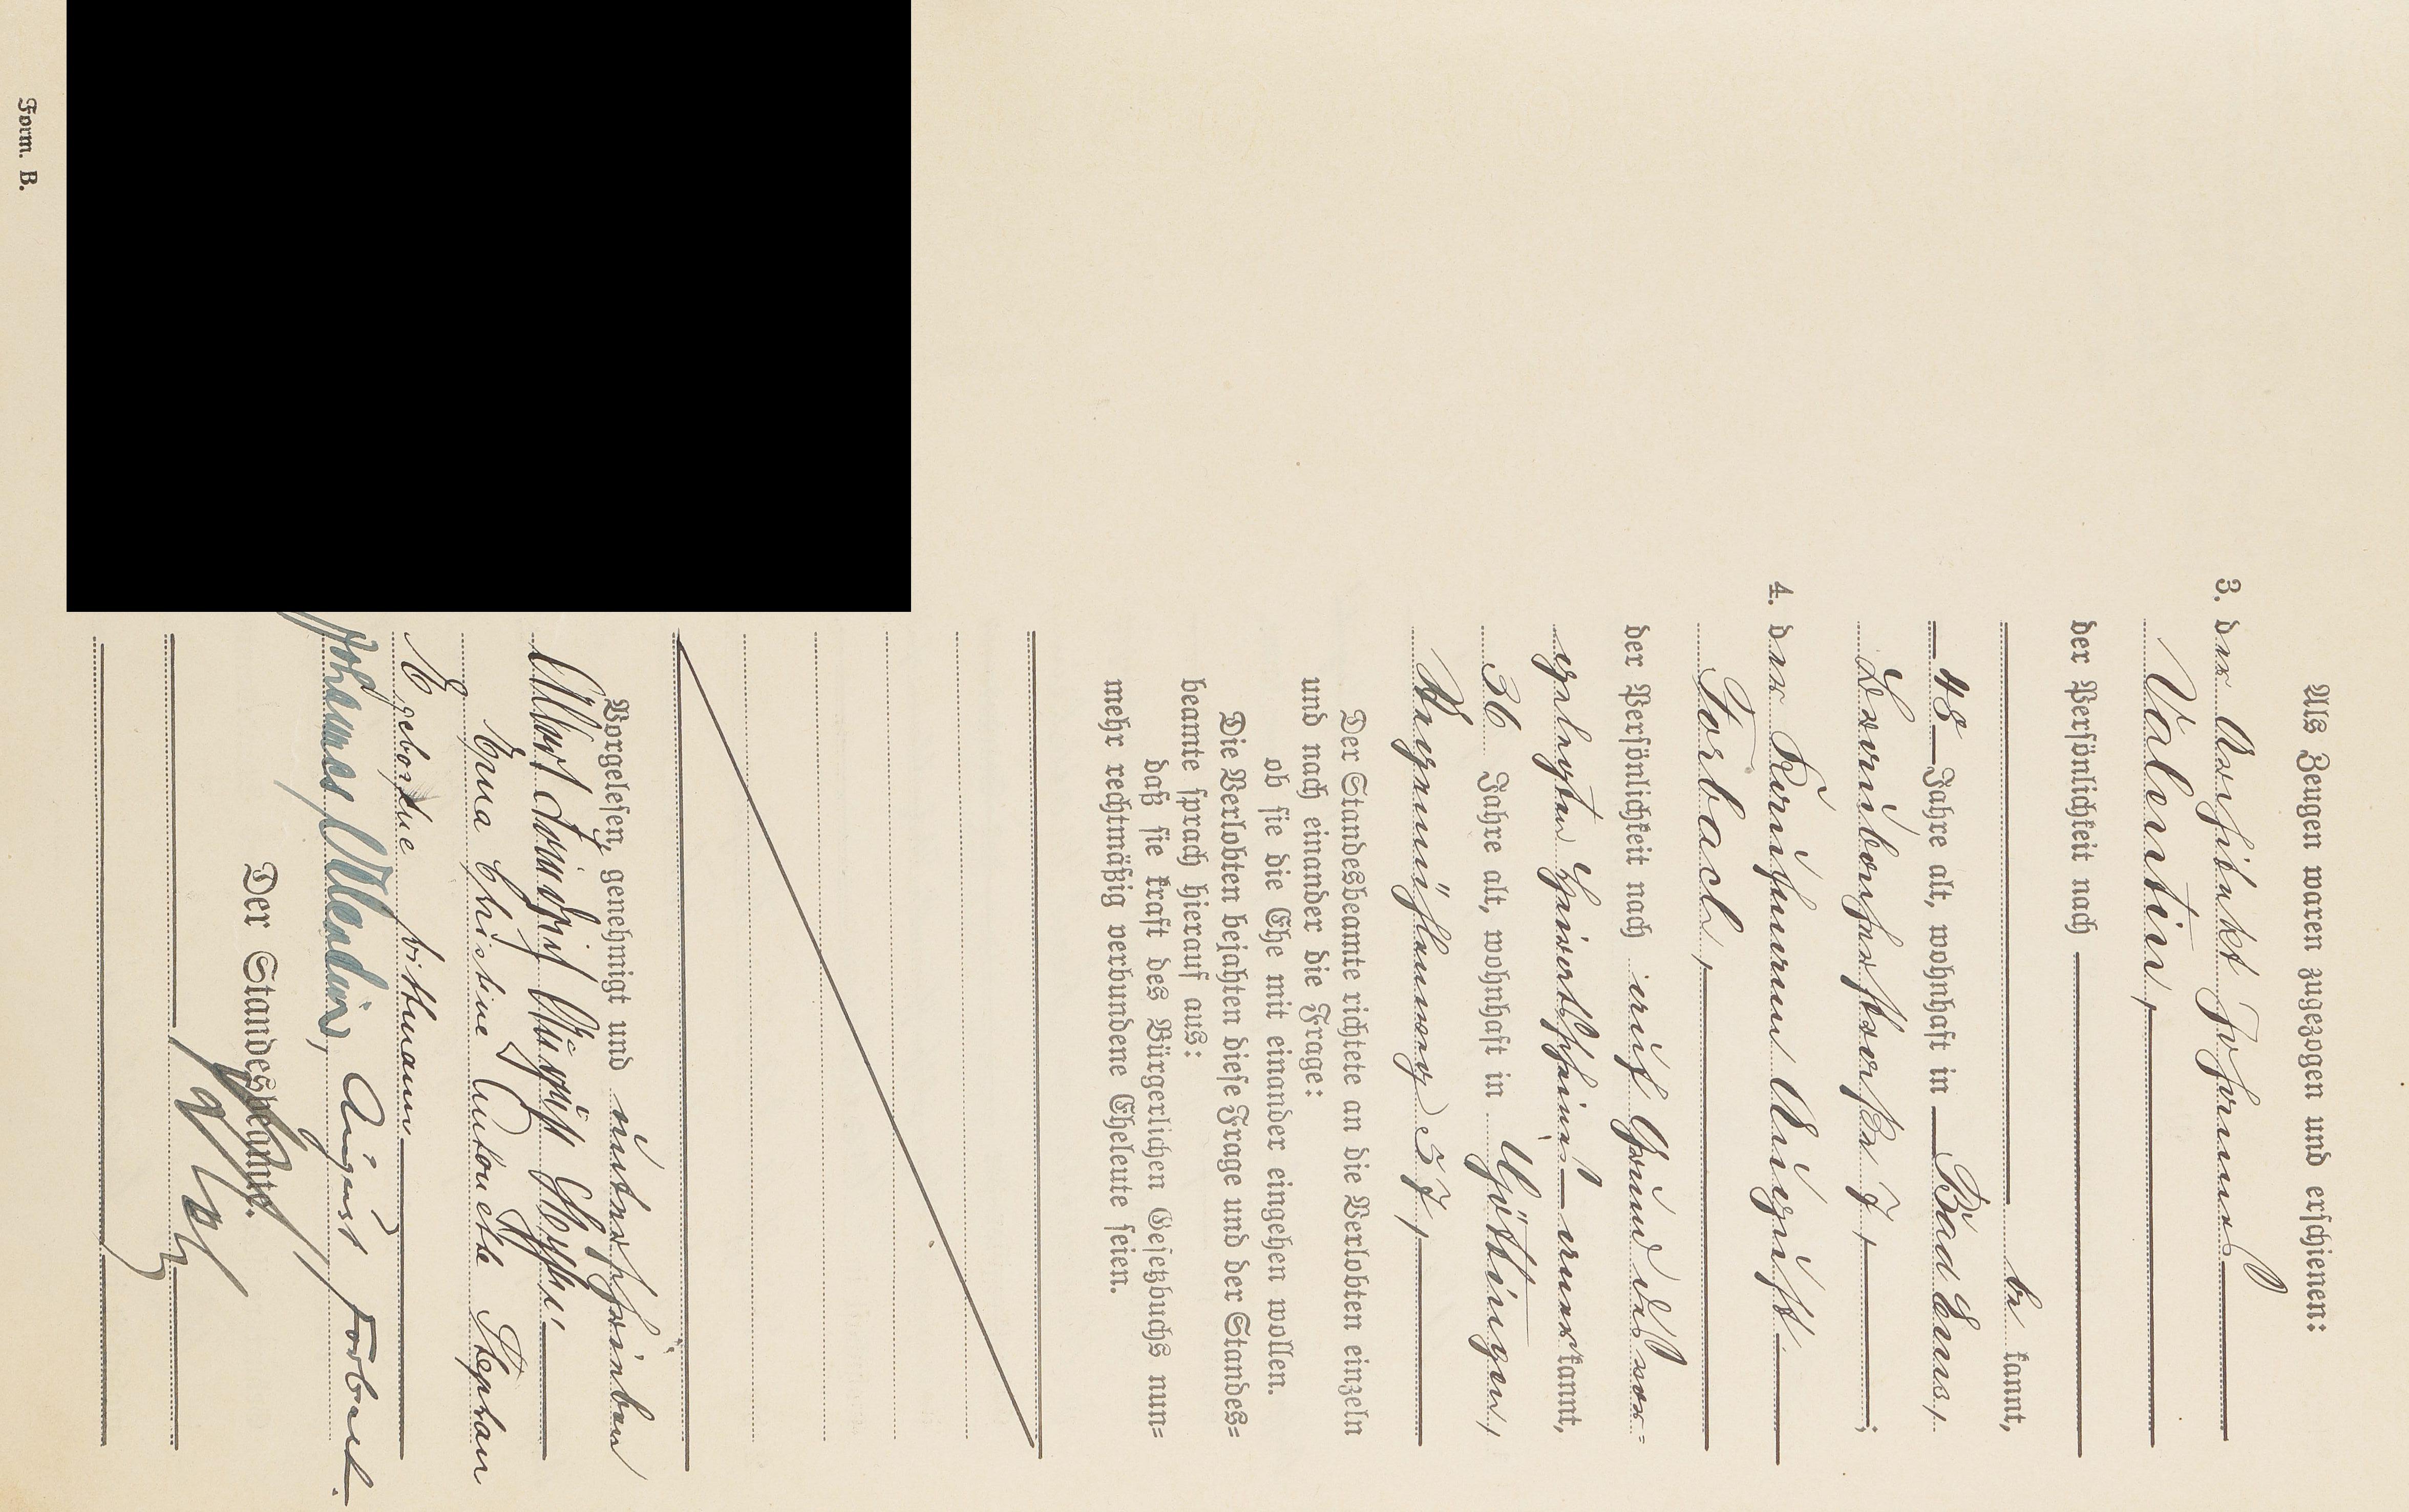 Als Zeugen waren zugezogen und erschienen:
3. der Architekt Johannes
Valentin,
der Persönlichkeit nach
be kannt,
48 Jahre alt, wohnhaft in Bad Ems,
Braubacherstraße 7,
4. der Kaufmann August
Forbach,
der Persönlichkeit nach auf Grund des vor=
gelegten anerkannt,
36 Jahre alt, wohnhaft in Göttingen,
37,
Der Standesbeamte richtete an die Verlobten einzeln
und nach einander die Frage:
ob sie die Ehe mit einander eingehen wollen.
Die Verlobten bejahten diese Frage und der Standes=
beamte sprach hierauf aus:
daß sie kraft des Bürgerlichen Gesetzbuchs nun=
mehr rechtmäßig verbundene Eheleute seien.
Vorgelesen, genehmigt und unterschrieben
Albert Friedrich August
Erna Christine Antonette Stephan
geborene Wittmann
Johannes Valentin, August Forbach.
Der Standesbeamte.
Form. B.